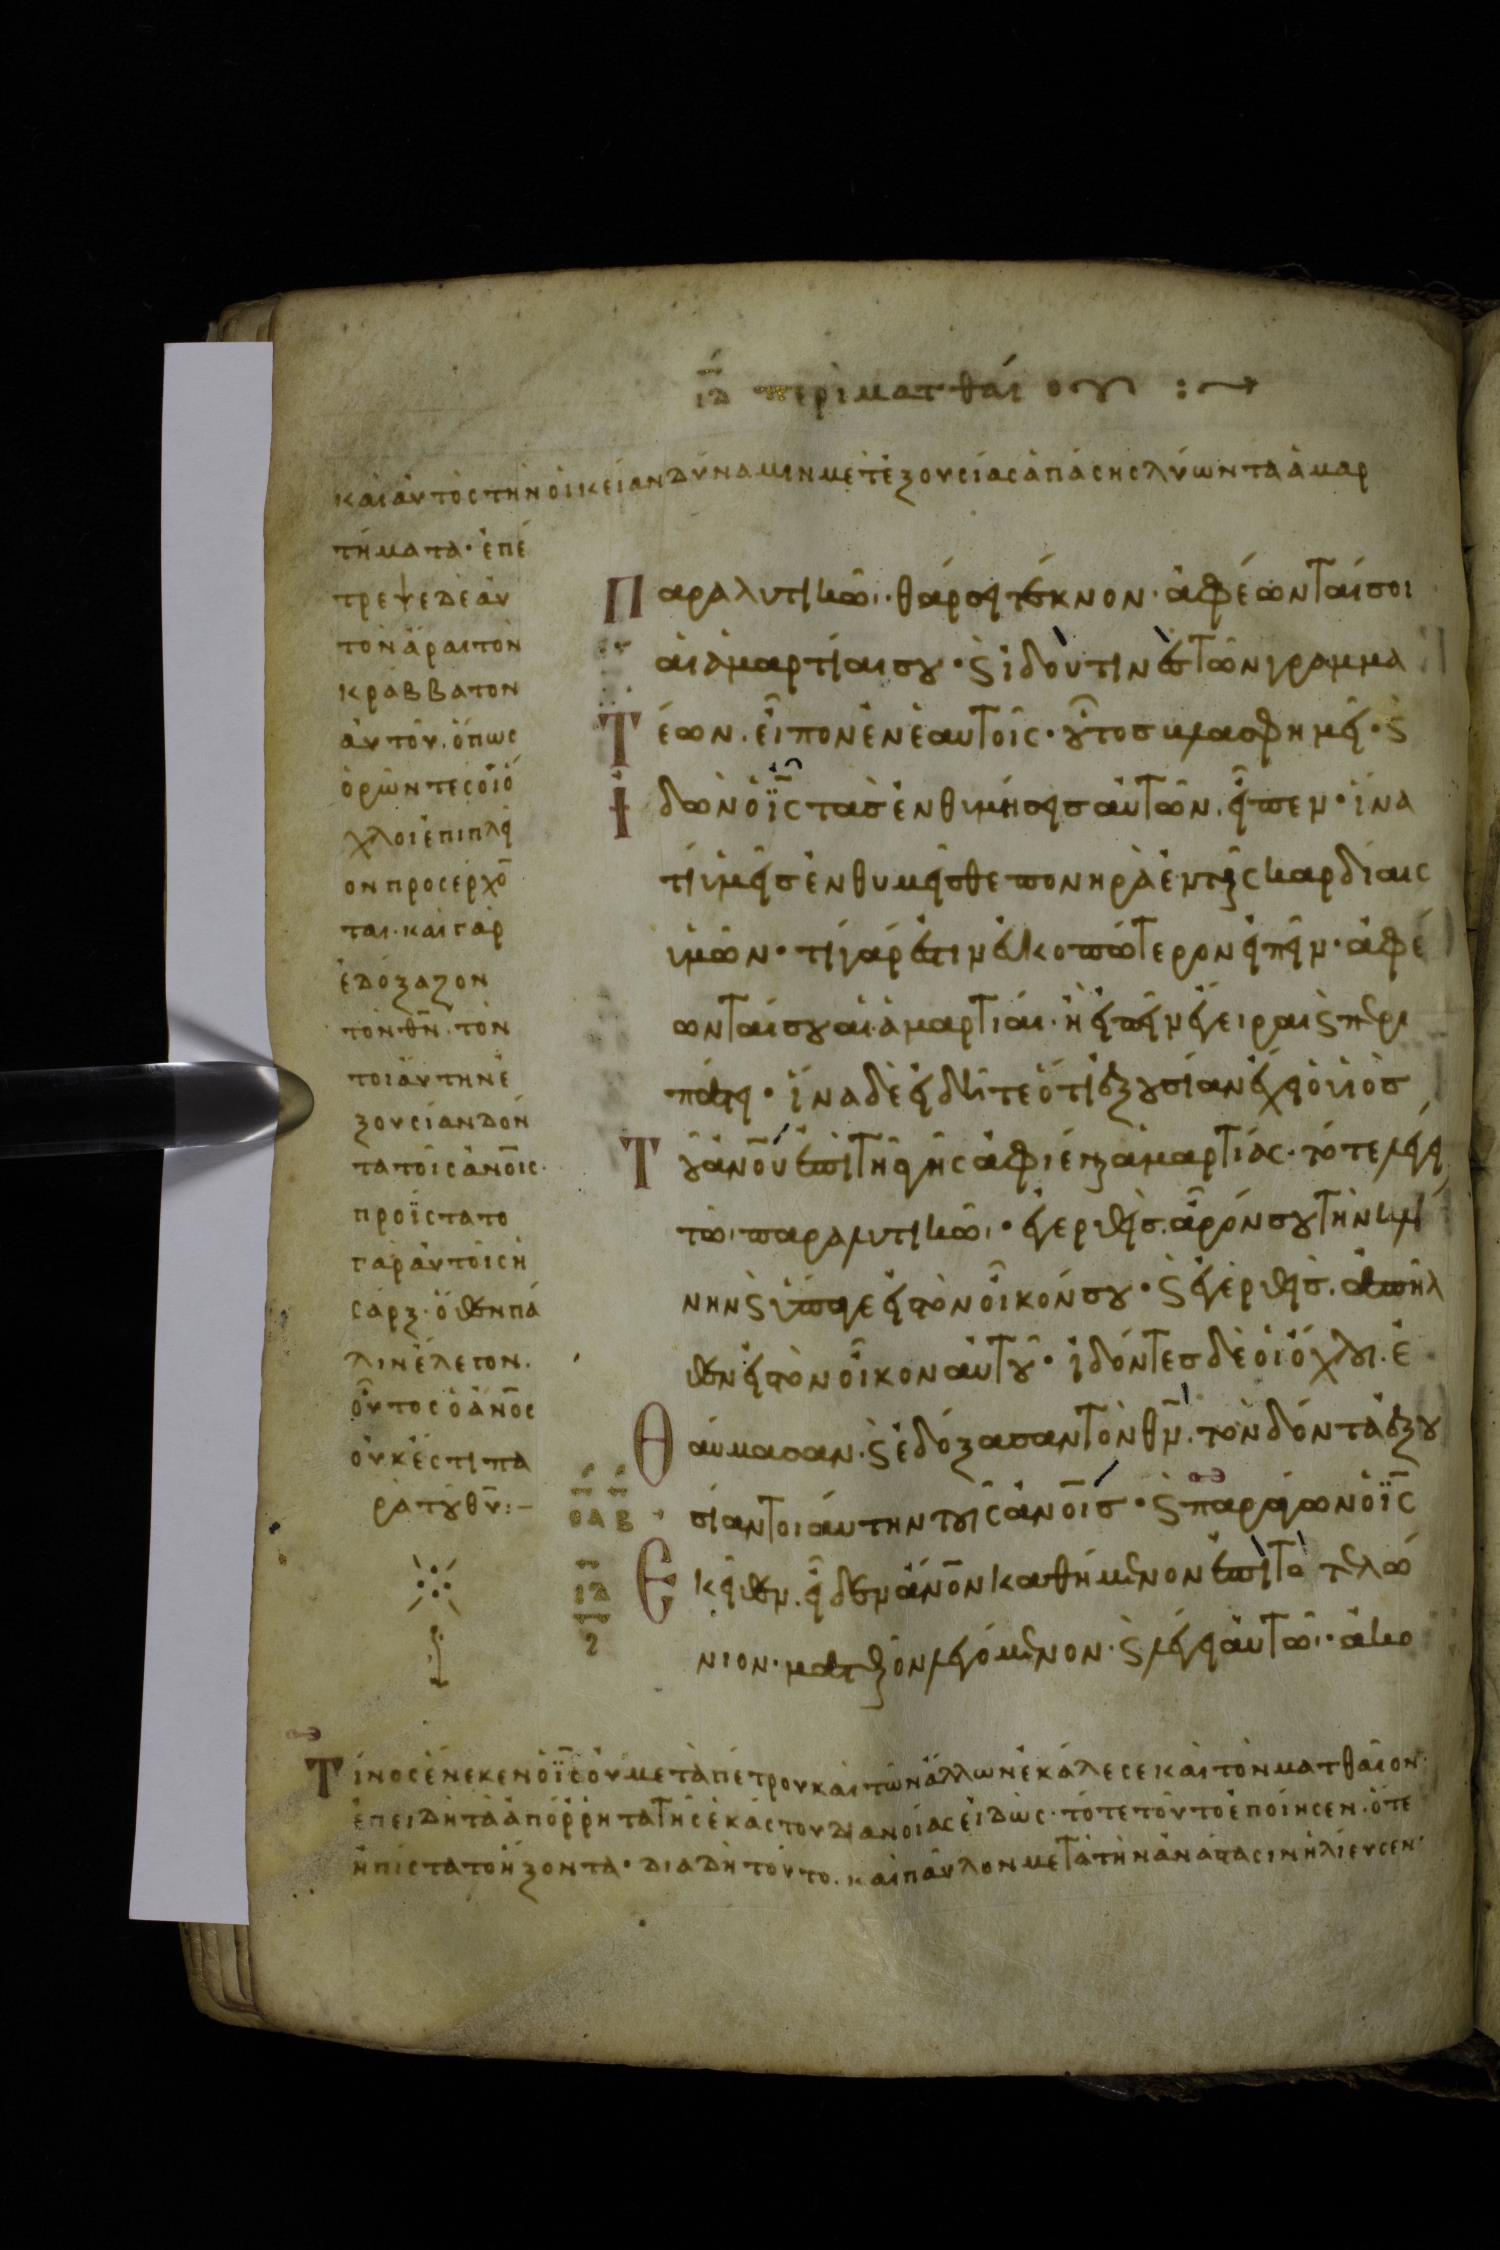 ιδ περὶ ματθαίου :
καὶ ἀυτὸς τὴν ὀικείαν δύναμιν μετ ἐξουσίας ἁπάσης λύων τὰ ἁμαρ
τήματα· ἐπέ
τρεψε δὲ ἀυ
τὸν ἆραι τὸν
κράββατον
ἀυτοῦ. ὅπως
ὁρῶντες ὁι ὄ
χλοι ἐπιπλεῖ
ον προσέρχον
ται· καὶ γὰρ
ἐδόξαζον
τὸν θν̄. τὸν
τοιάυτην ἐ
ξουσίαν δόν
τα τοῖς ἀνοῖς·
προΐστατο
γὰρ ἀυτοῖς ἡ
σάρξ· ὅθεν πά
λιν ἔλεγον.
οὗτος ὁ ἄνος
ὀυκ ἔστι πα
ρὰ τοῦ θῡ:–
Παραλυτικῶι· θάρσει τέκνον· ἀφέωνται σοι
αι ἁμαρτίαι σου· ϛ ἰδοὺ τινὲς τῶν γραμμα
Τέων. εἶπον ἐν ἑαυτοῖς· οὗτος βλασφημεῖ· ϛ
Ιδὼν ὁ ις̄ τὰς ἐνθιμήσεις αὐτῶν. εἶπεν· ἵνα
τί ὑμεῖς ἐνθυμεῖσθε πονηρὰ ἐν ταῖς καρδίαις
ὑμῶν· τί γάρ ἐστιν ἐυκοπώτερον εἰπεῖν· ἀφέ
ωνται σου αἱ ἁμαρτίαι· ἢ εἰπεῖν ἔγειραι ϛ περι
πάτει· ἵνα δὲ εἰδῆτε ὅτι ἐξουσίαν ἔχει ὁ υἱὸς
Τοῦ ἀνοῡ ἐπὶ τῆς γῆς ἀφιέναι ἁμαρτίας· τότε λέγει
τῶι παραλυτικῶι· ἐγερθεὶς. ἆρόν σου τὴν κλί
νην ϛ ὕπαγε εἰς τὸν οἶκόν σου· ϛ ἐγερθεὶς. ἀπῆλ
θεν εἰς τὸν οἶκον αὐτοῦ· ἰδόντες δὲ οἱ ὄχλοι. ἐ
Θαύμασαν. ϛ ἐδόξασαν τὸν θν̄. τὸν δόντα ἐξου
οα β
σίαν τοιάυτην τοῖς ἀνοῖς· ϛ παράγων ὁ ις̄
ιδ
Εκεῖθεν. εἶδεν ἄνον καθήμενον ἐπὶ τὸ τελώ
νιον· ματθαῖον λεγόμενον· ϛ λέγει αὐτῶι· ἀκο
Τίνος ἕνεκεν ὁ ις̄ οὐ μετὰ πέτρου καὶ τῶν ἄλλων ἐκάλεσε καὶ τὸν ματθαῖον·
ἐπειδὴ τὰ ἀπόρρητα τῆς ἑκάστου διανοίας εἰδὼς· τότε τοῦτο ἐποίησεν. ὅτε
ἠπίστατο ἥξοντα· διὰ δὴ τοῦτο. καὶ παῦλον μετὰ τὴν ἀνάστασιν ἡλίευσεν·